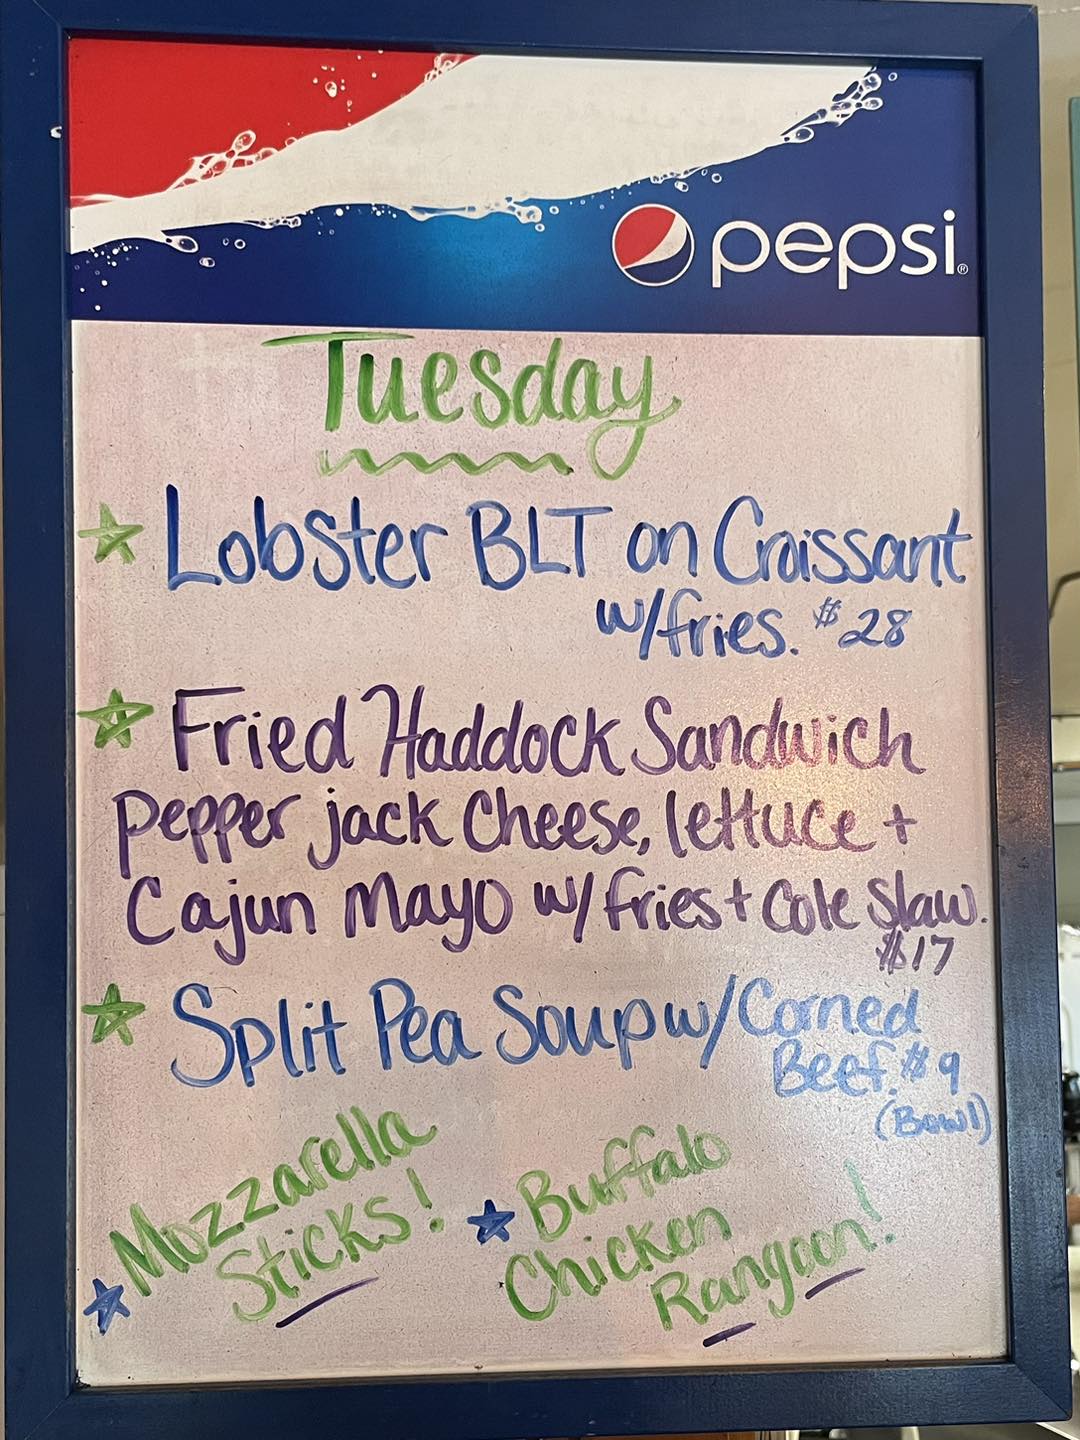 pepsi®
Tuesday
Lobster BLT on Croissant
w/fries. $28
Fried Haddock Sandwich
pepper jack Cheese, lettuce +
Cajun Mayo w/fries + Cole Slaw.
$17
Split Pea Soup w/Corned
Beef. $9
(Bowl)
Mozzarella
Sticks!
Buffalo
Chicken
Rangoon!